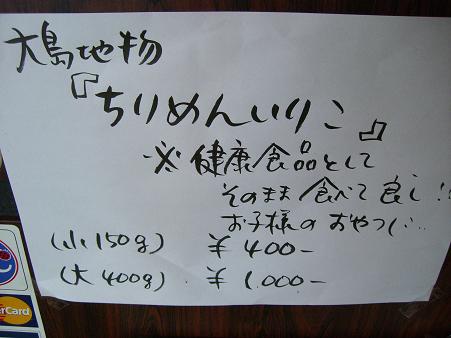 大島地物
『ちりめんいりこ』
※健康食品として
そのまま食べて良し!!
お子様のおやつに…
(小150g) ¥400-
(大400g) ¥1,000-
erCard